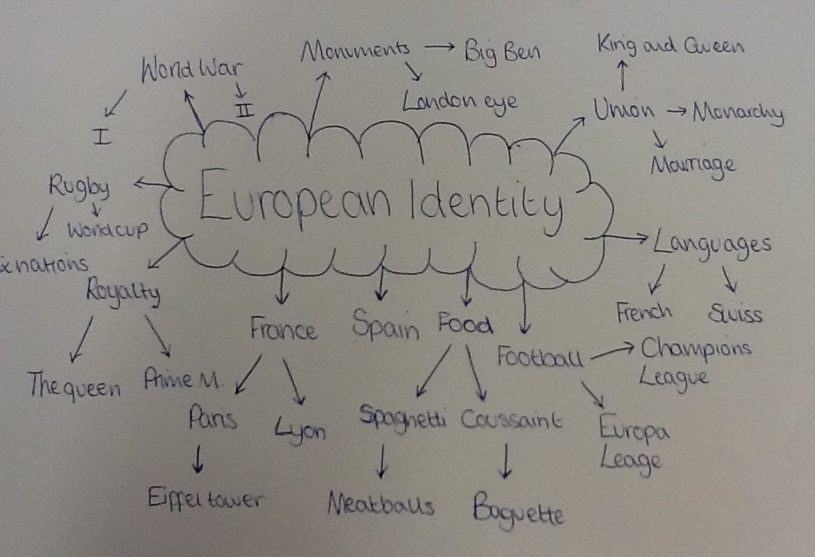 Monuments → Big Ben
King and Queen
World War
London eye
II
Union → Monarchy
I
Marriage
Rugby
European Identity
Worldcup
Languages
ixnations
Royalty
French
Swiss
France
Spain
Food
Football → Champions
League
The queen
Prime M.
Paris
Lyon
Spaghetti
Coussaint
Europa
Leage
Eiffel tower
Meatballs
Baguette